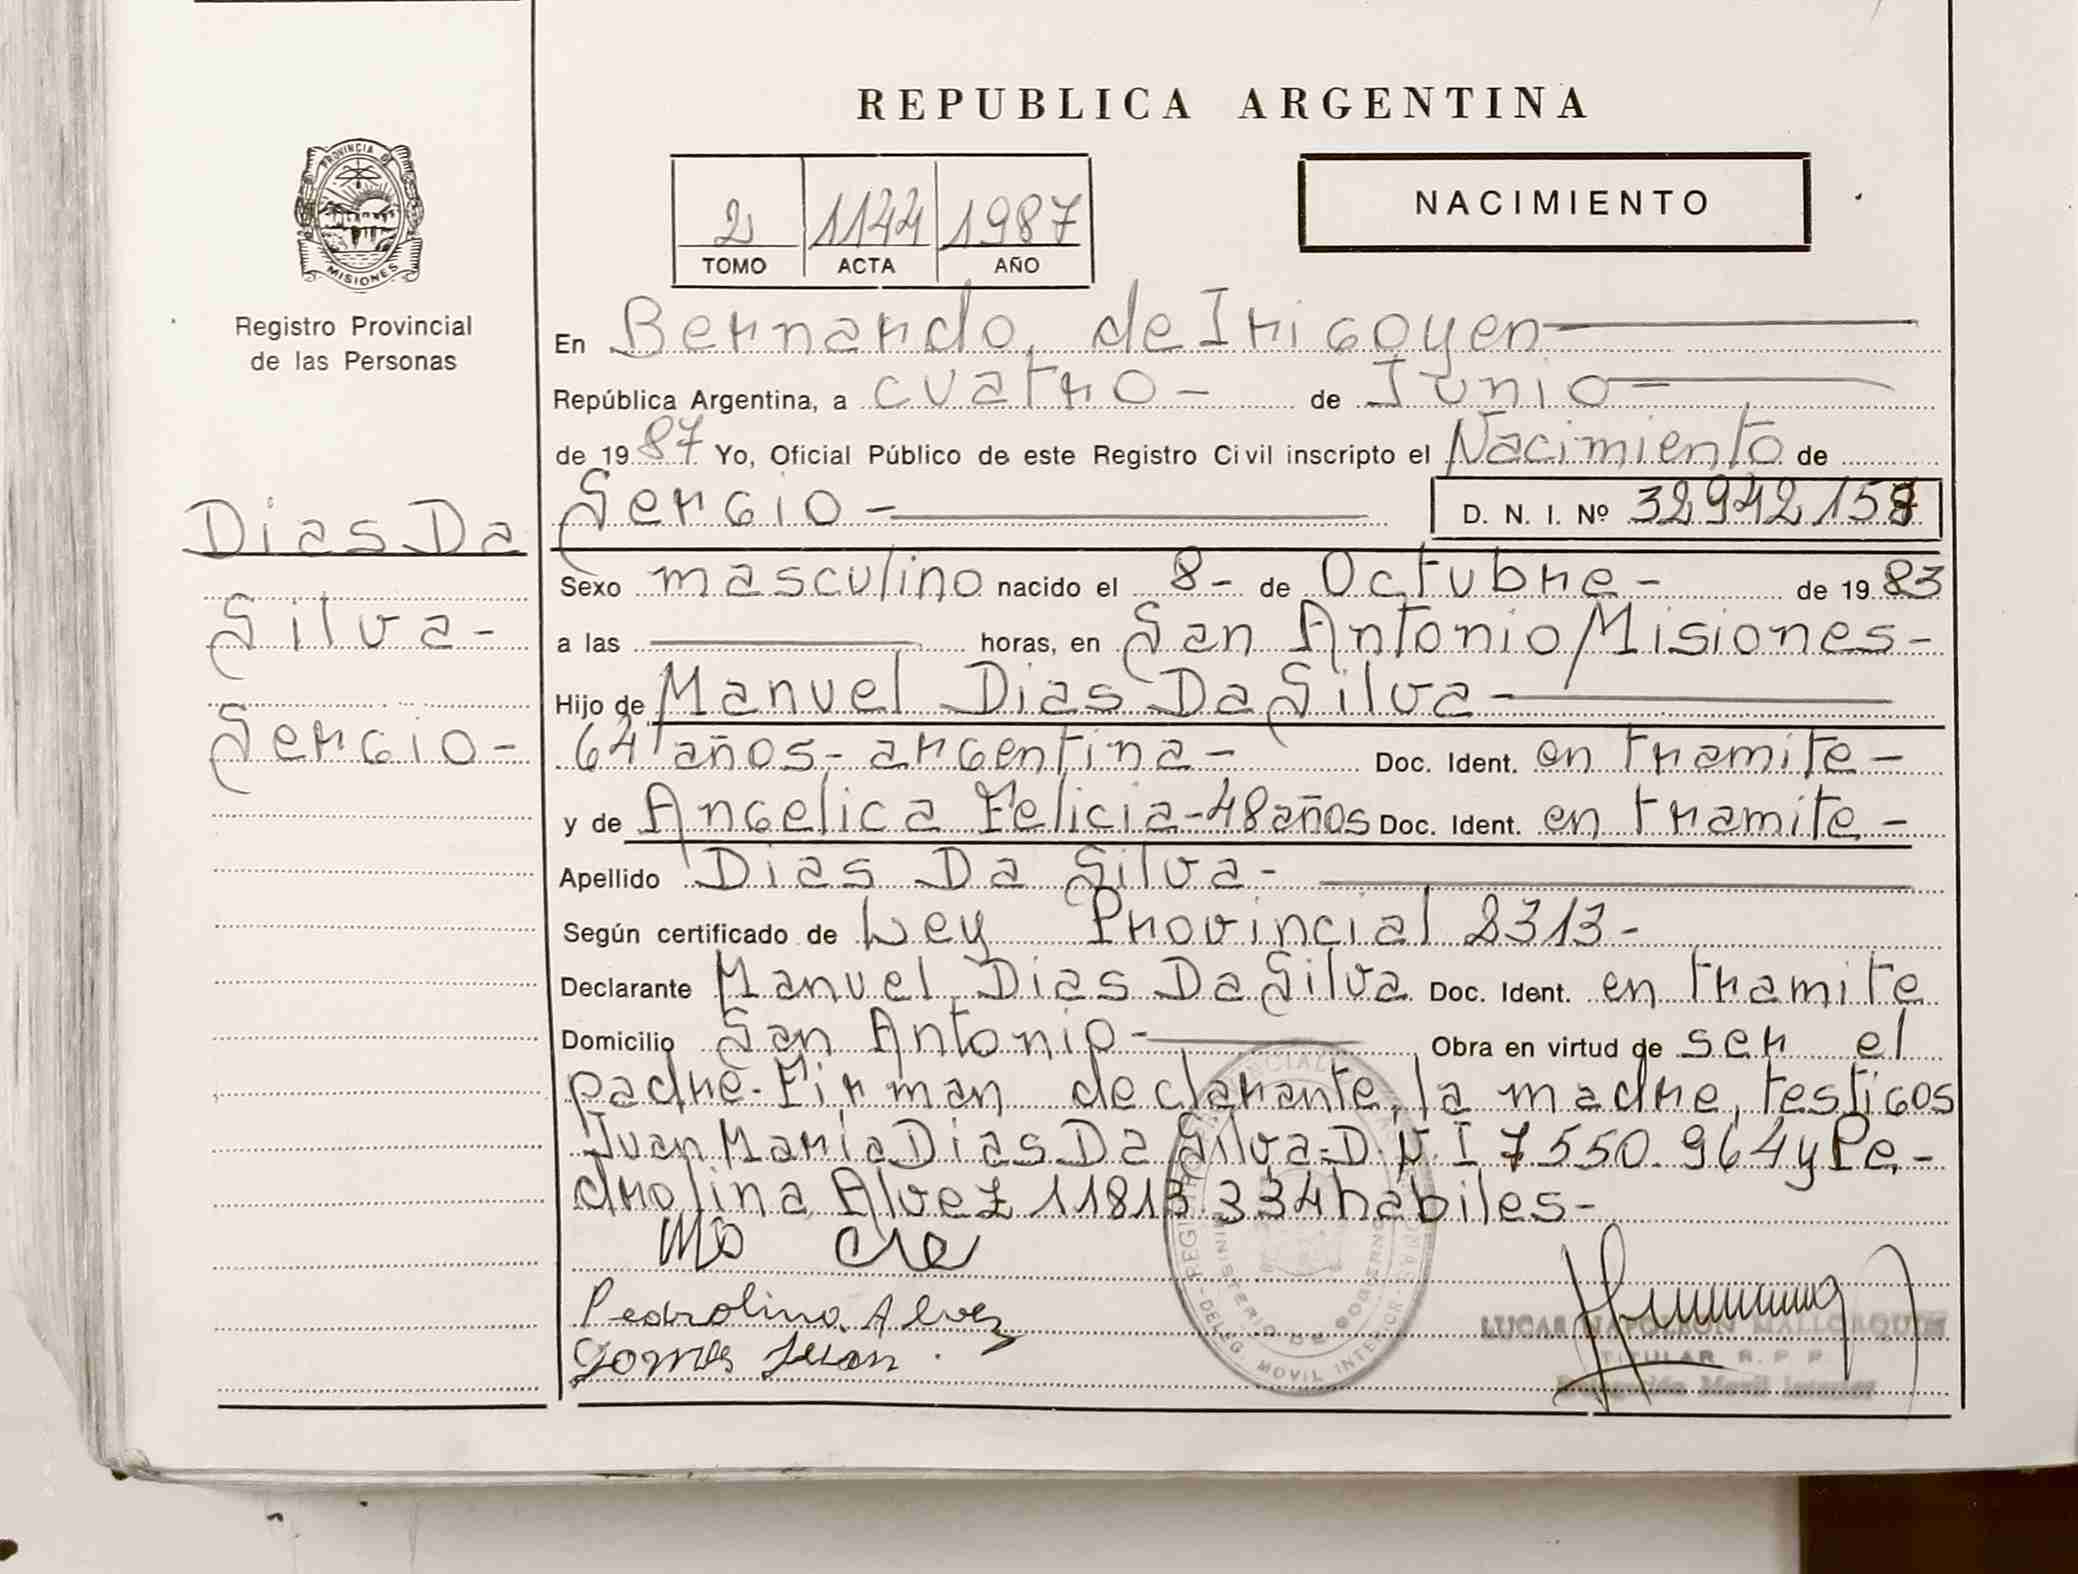 REPUBLICA ARGENTINA
PROVINCIA DE
MISIONES
Registro Provincial
de las Personas
2 1144 1987
TOMO ACTA AÑO
NACIMIENTO
En Bernardo de Irigoyen
República Argentina, a cuatro - de Junio -
de 1987 Yo, Oficial Público de este Registro Civil inscripto el Nacimiento de
Sergio -
D. N. I. Nº 32942157
Dias Da
Silva -
Sergio -
Sexo masculino nacido el 8 - de Octubre - de 1983
a las horas, en San Antonio/Misiones -
Hijo de Manuel Dias Da Silva -
64 años - argentina - Doc. Ident. en tramite -
y de Angelica Felicia - 48 años Doc. Ident. en tramite -
Apellido Dias Da Silva -
Según certificado de Ley Provincial 2313 -
Declarante Manuel Dias Da Silva Doc. Ident. en tramite
Domicilio San Antonio - Obra en virtud de ser el
padre - Firman declarante, la madre, testigos
Juan Maria Dias Da Silva - D.N.I 7550.964 y Pe -
drolina Alvez 11813.334 habiles -
Pedrolina Alvez
Gomes Juan.
MINISTERIO DE GOBIERNO
DELEG. MOVIL INTERIOR
LUCAS NAPOLEON MALLORQUIN
TITULAR R. P. P.
Delegación Movil Interior